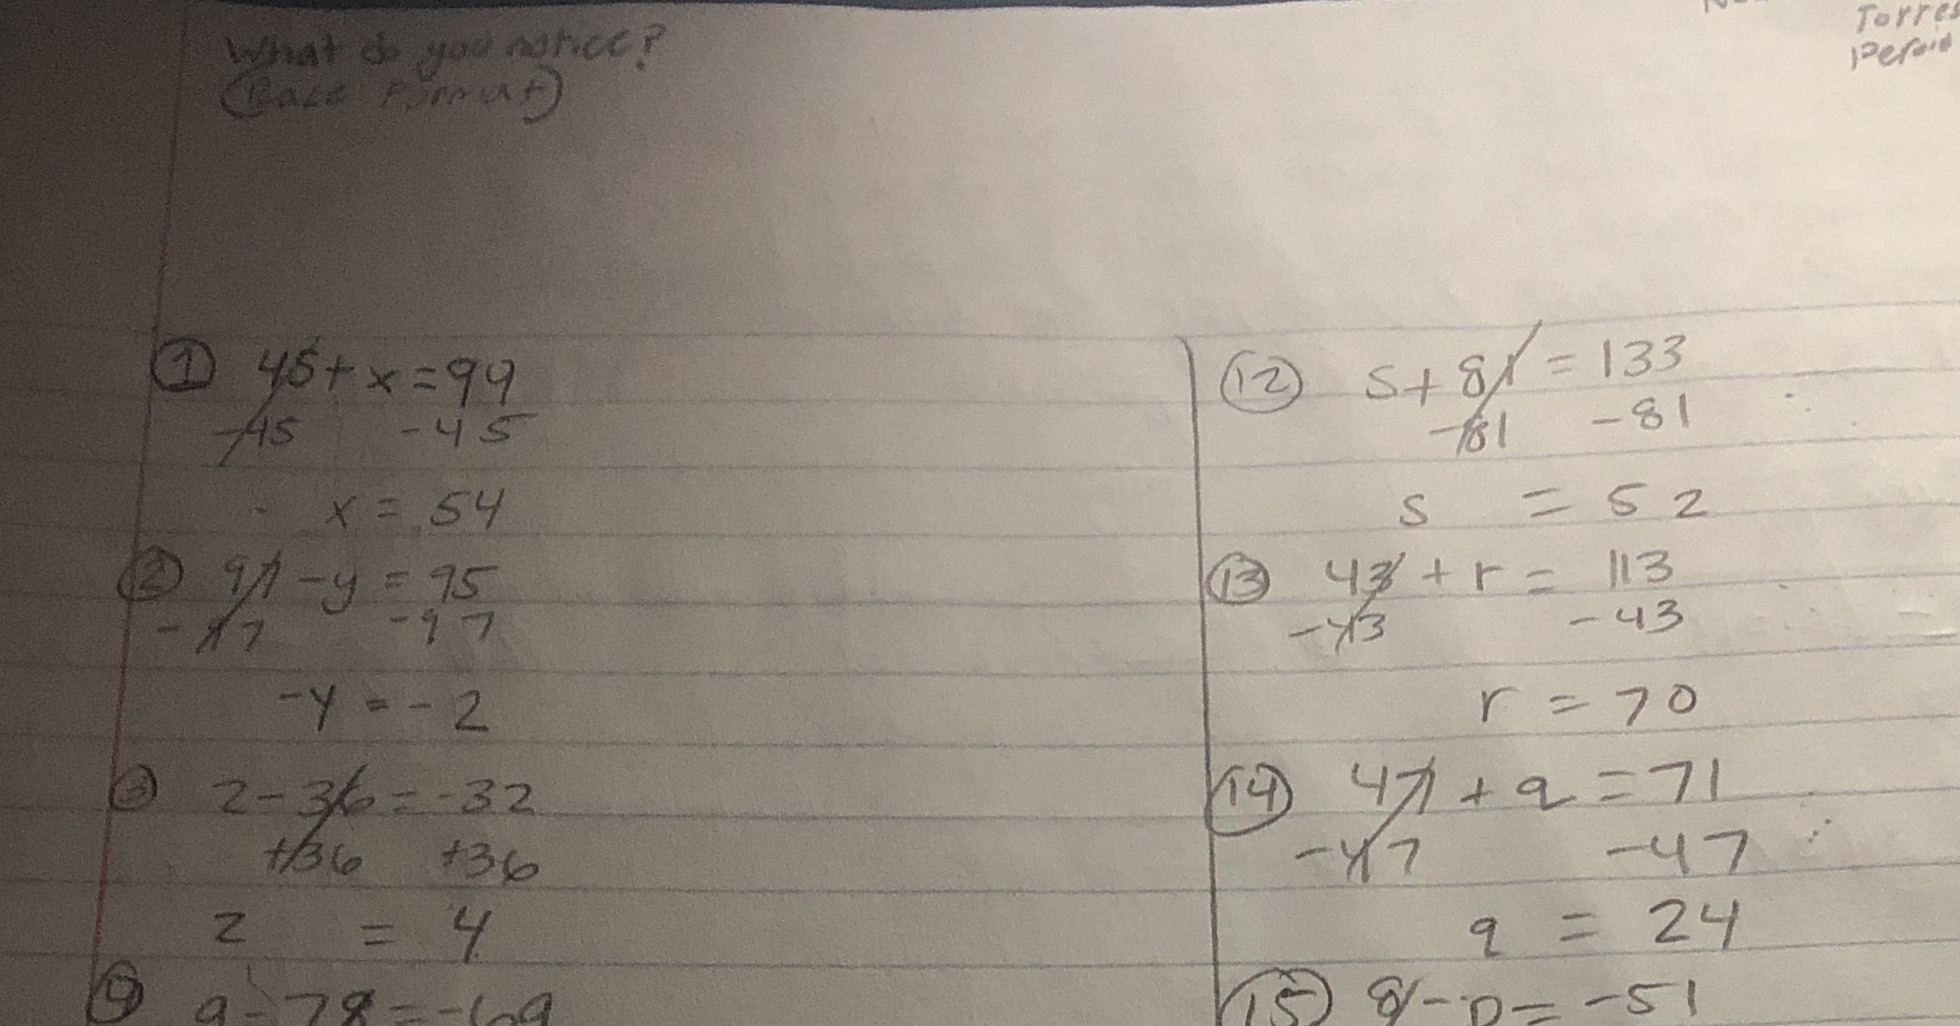 What do you notice?
(Race Format)
Torres
① 45 + x = 99
-45 -45
x = 54
② 97 - y = 95
-97 -97
-y = -2
③ z - 36 = -32
+36 +36
z = 4
④ a - 78 = -69
⑫ s + 81 = 133
-81 -81
s = 52
⑬ 43 + r = 113
-43 -43
r = 70
⑭ 47 + q = 71
-47 -47
q = 24
⑮ 8 - p = -51